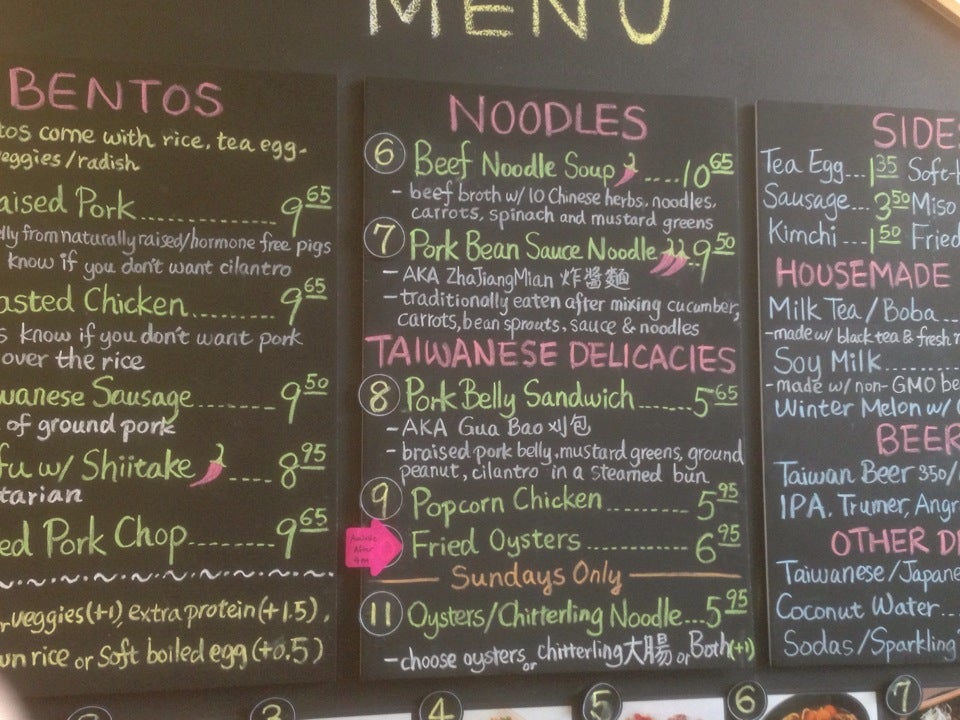 MENU
BENTOS
come with rice, tea egg-
veggies/radish
Pork............. 9 65
from naturally raised/hormone free pigs
know if you don't want cilantro
Chicken ......... 9 65
know if you don't want pork
over the rice
Sausage........ 9 50
of ground pork
w/ Shiitake .... 8 95
Pork Chop......... 9 65
veggies (+1), extra protein (+1.5),
rice or Soft boiled egg (+0.5)
NOODLES
6 Beef Noodle Soup .....10 65
- beef broth w/ 10 Chinese herbs, noodles,
carrots, spinach and mustard greens
7 Pork Bean Sauce Noodle 9 50
- AKA ZhaJiangMian 炸醬麵
- traditionally eaten after mixing cucumber,
carrots, bean sprouts. sauce & noodles
TAIWANESE DELICACIES
8 Pork Belly Sandwich.......5 65
- AKA Gua Bao 刈包
- braised pork belly, mustard greens, ground
peanut, cilantro in a steamed bun
9 Popcorn Chicken ........ 5 95
Available
After
4 PM
Fried Oysters ........... 6 95
Sundays Only
11 Oysters/Chitterling Noodle...5 95
- choose oysters or chitterling 大腸 or Both (+1)
SIDES
Tea Egg....1 35
Sausage... 3 50 Miso
Kimchi ...1 50 Fried
HOUSEMADE
Milk Tea/Boba ..
- made w/ black tea & fresh
Soy Milk...........
- made w/ non-GMO
Winter Melon w/
BEER
Taiwan Beer 350/
IPA, Trumer,
OTHER
Taiwanese/
Coconut Water....
Sodas/Sparkling
3 4 5 6 7